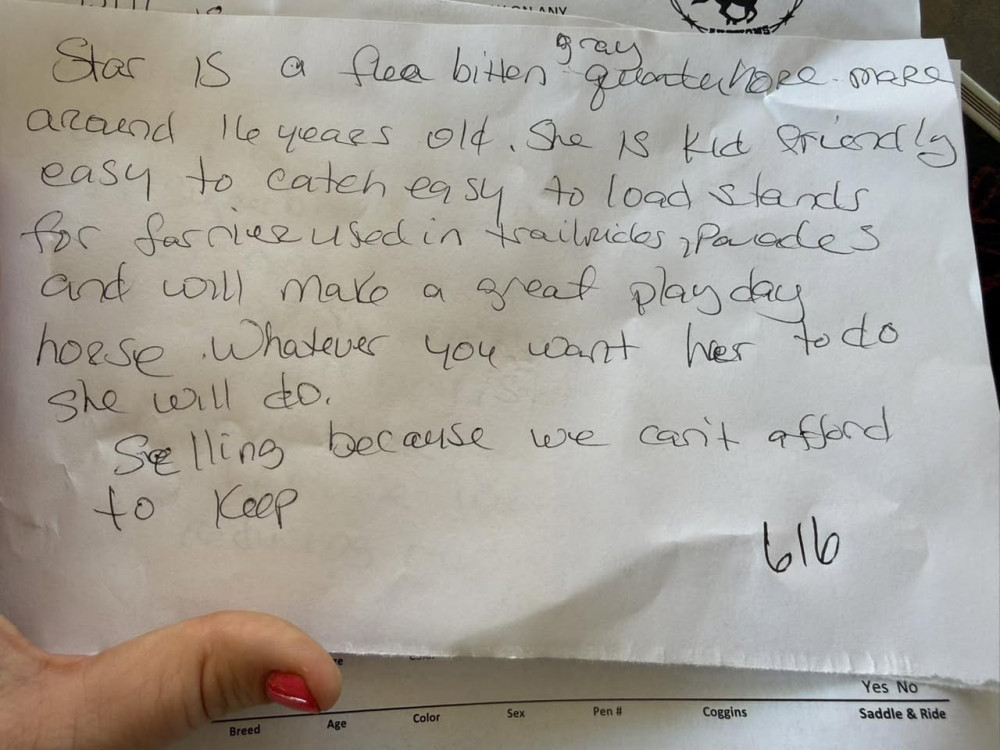 ON ANY
Star is a flea bitten gray quarterhorse mare
around 16 years old. She is kid friendly
easy to catch easy to load stands
for farrier used in trailrides, Parades
and will make a great play day
horse. Whatever you want her to do
she will do.
Selling because we can't afford
to Keep
616
Yes No
Breed Age Color Sex Pen # Coggins Saddle & Ride